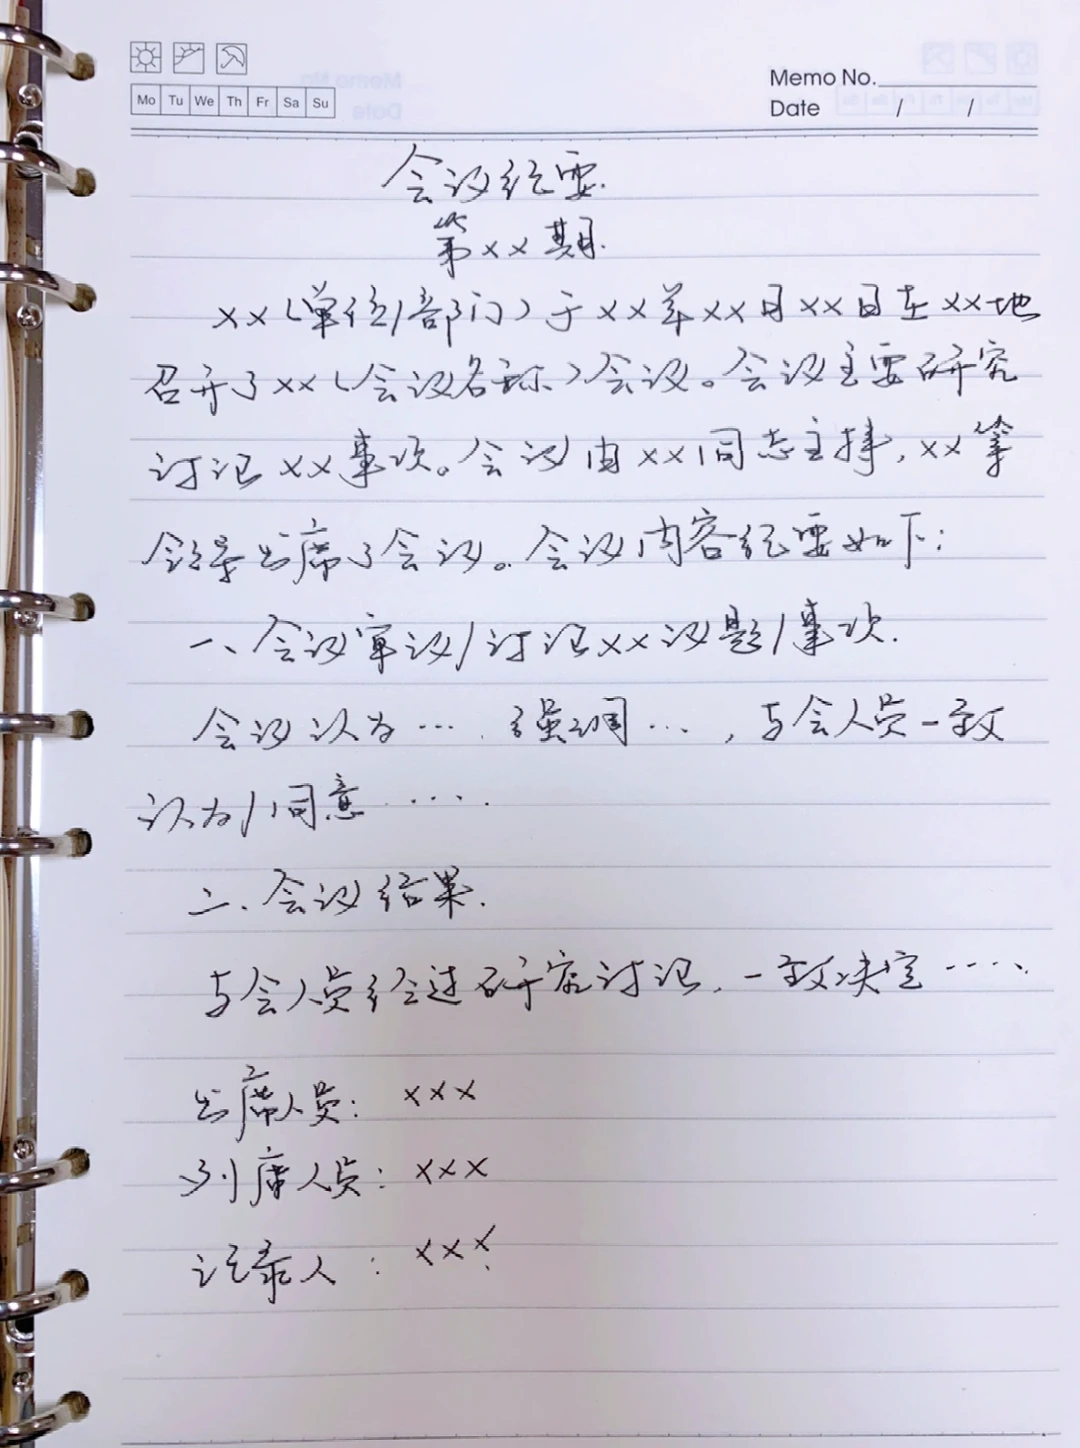 Mo Tu We Th Fr Sa Su
Memo No.
Date / /
会议纪要.
第xx期.
xx(单位/部门)于xx年xx月xx日在xx地
召开了xx(会议名称)会议。会议主要研究
讨论xx事项。会议由xx同志主持,xx等
领导出席了会议。会议内容纪要如下:
一、会议审议/讨论xx议题/事项.
会议认为…,强调…,与会人员一致
认为/同意…….
二、会议结果.
与会人员经过研究讨论,一致决定…….
出席人员: xxx
列席人员: xxx
记录人: xxx.